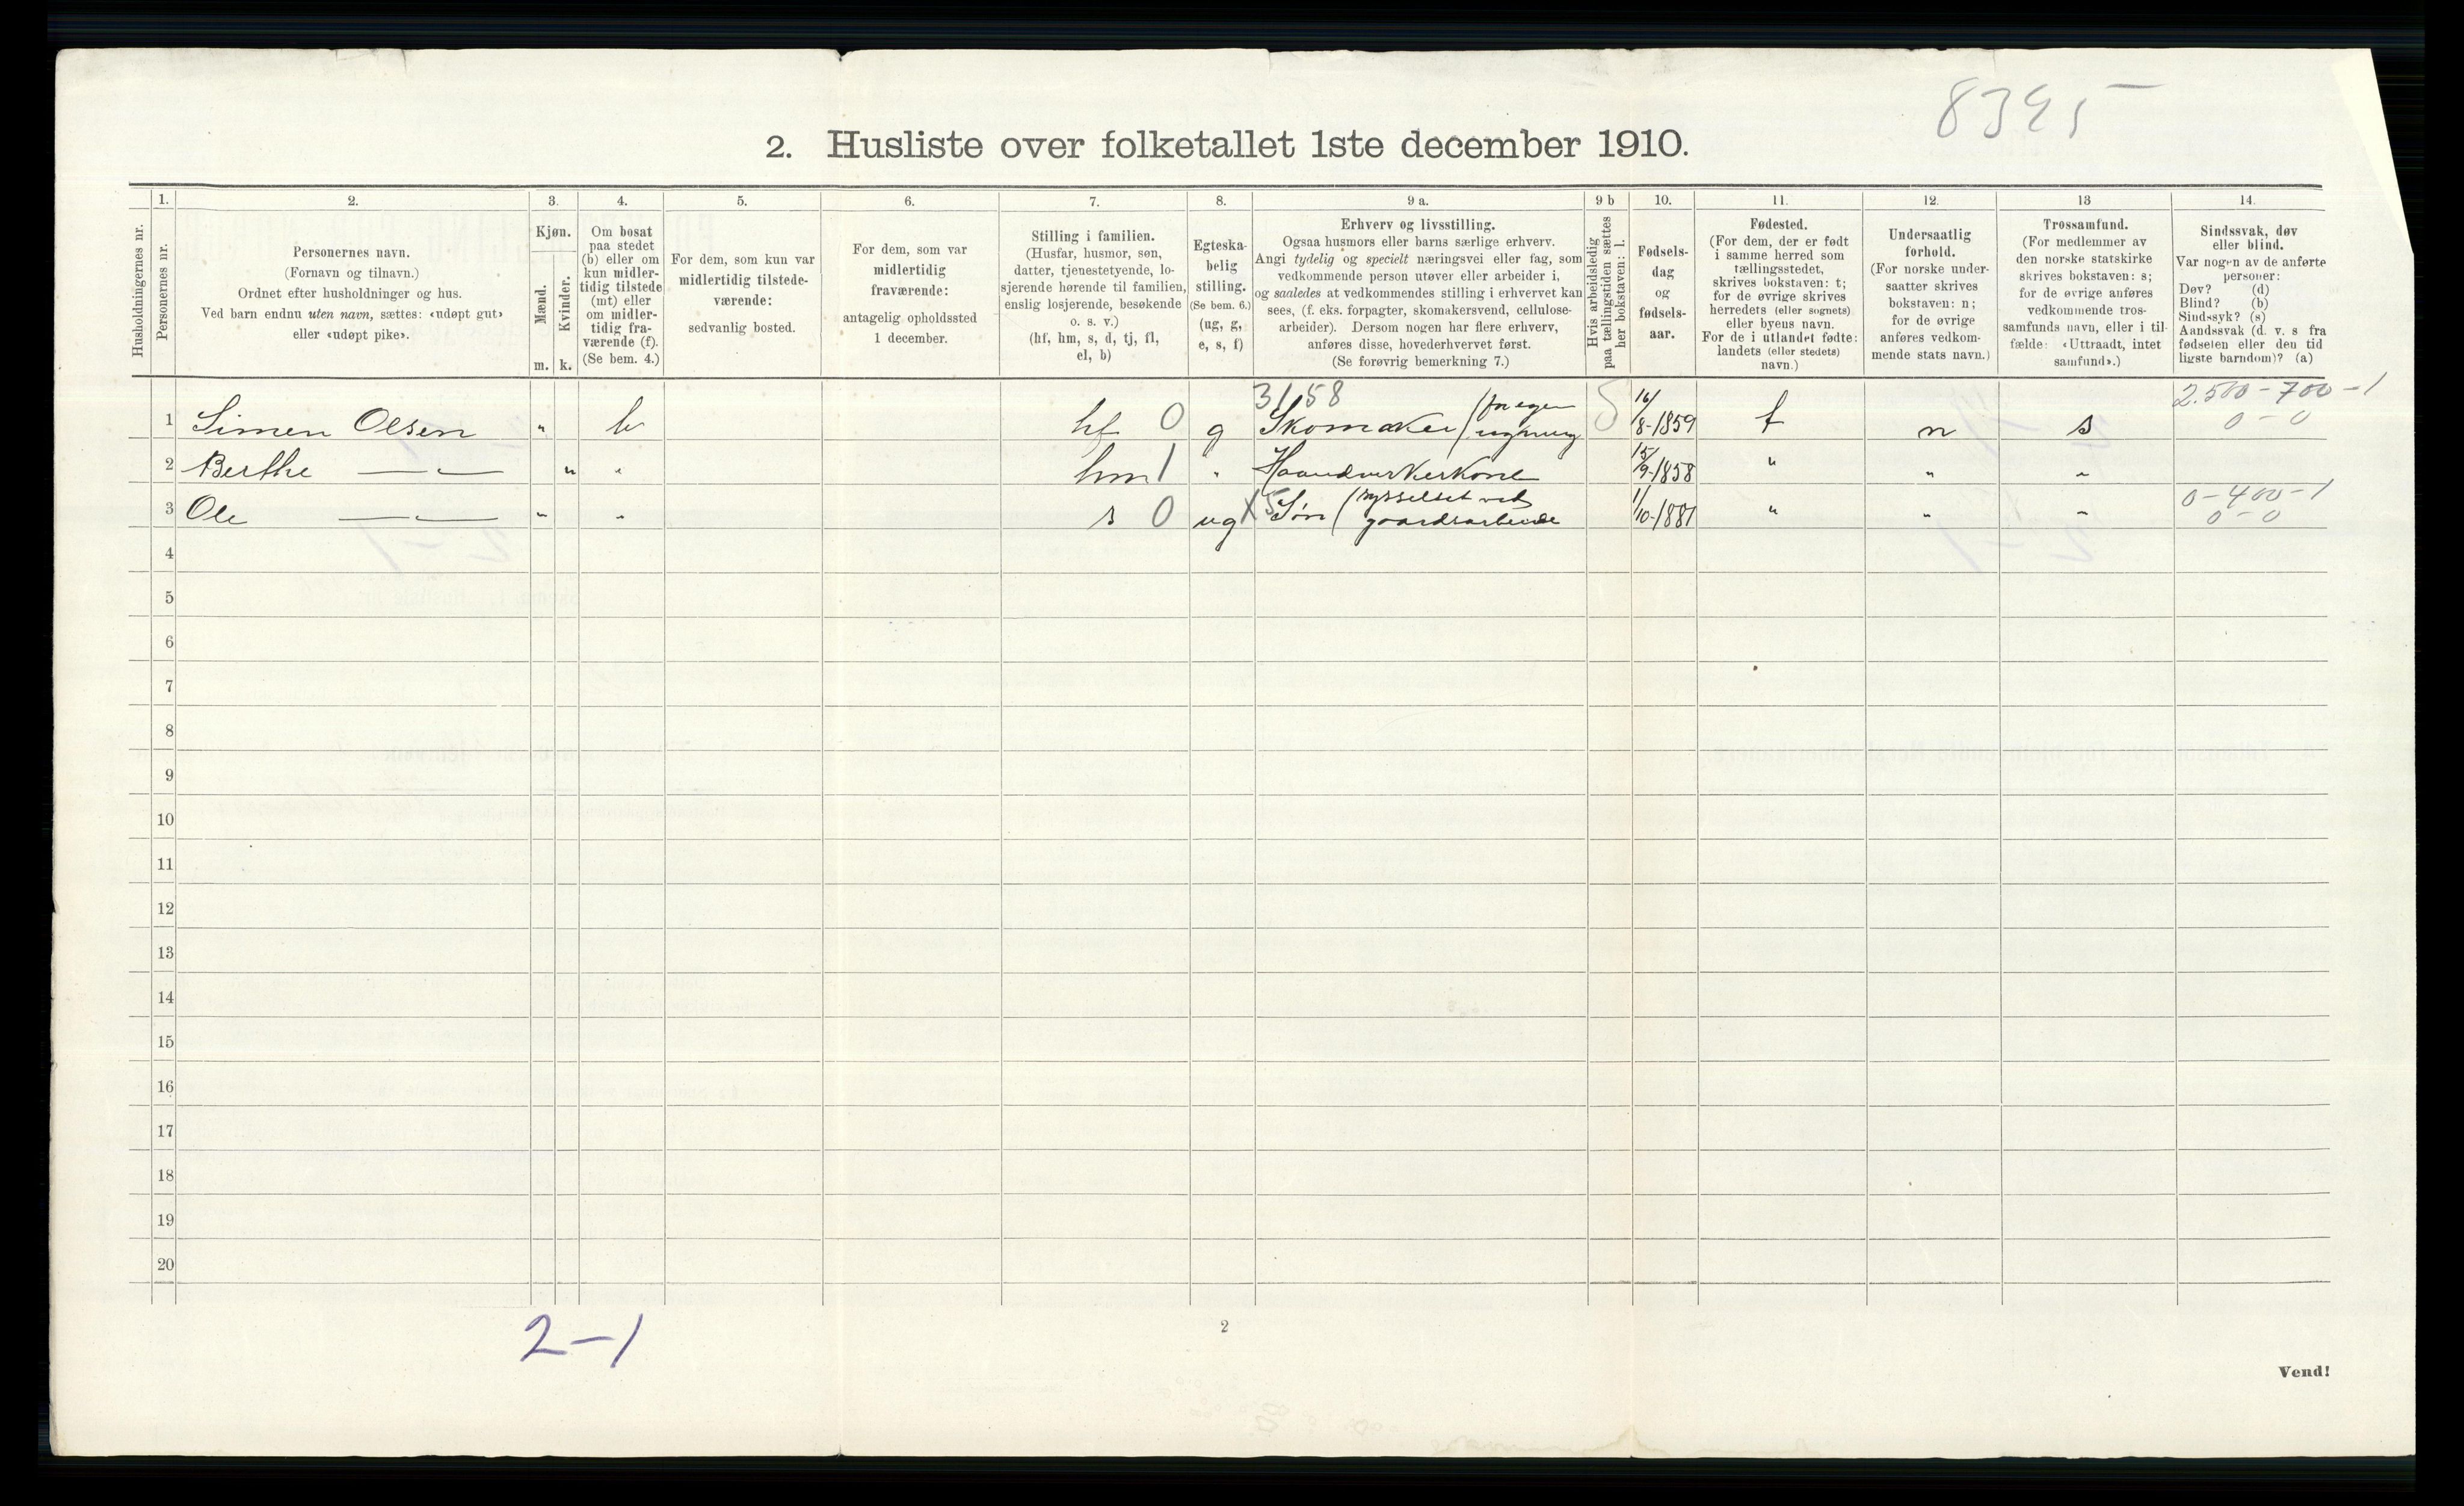 8395
2. Husliste over folketallet 1ste december 1910.
Husholdningernes nr.
1.
Personernes nr.
2.
Personernes navn.
(Fornavn og tilnavn.)
Ordnet efter husholdninger og hus.
Ved barn endnu uten navn, sættes: «udøpt gut»
eller «udøpt pike».
3.
Kjøn.
Mænd.
Kvinder.
m. k.
4.
Om bosat
paa stedet
(b) eller om
kun midler-
tidig tilstede
(mt) eller
om midler-
tidig fra-
værende (f).
(Se bem. 4.)
5.
For dem, som kun var
midlertidig tilstede-
værende:
sedvanlig bosted.
6.
For dem, som var
midlertidig
fraværende:
antagelig opholdssted
1 december.
7.
Stilling i familien.
(Husfar, husmor, søn,
datter, tjenestetyende, lo-
sjerende hørende til familien,
enslig losjerende, besøkende
o. s. v.)
(hf, hm, s, d, tj, fl,
el, b)
8.
Egteska-
belig
stilling.
(Se bem. 6.)
(ug, g,
e, s, f)
9 a.
Erhverv og livsstilling.
Ogsaa husmors eller barns særlige erhverv.
Angi tydelig og specielt næringsvei eller fag, som
vedkommende person utøver eller arbeider i,
og saaledes at vedkommendes stilling i erhvervet kan
sees, (f. eks. forpagter, skomakersvend, cellulose-
arbeider). Dersom nogen har flere erhverv,
anføres disse, hovederhvervet først.
(Se forøvrig bemerkning 7.)
9 b
Hvis arbeidsledig
paa tællingstiden sættes
her bokstaven: l.
10.
Fødsels-
dag
og
fødsels-
aar.
11.
Fødested.
(For dem, der er født
i samme herred som
tællingsstedet,
skrives bokstaven: t;
for de øvrige skrives
herredets (eller sognets)
eller byens navn.
For de i utlandet fødte:
landets (eller stedets)
navn.)
12.
Undersaatlig
forhold.
(For norske under-
saatter skrives
bokstaven: n;
for de øvrige
anføres vedkom-
mende stats navn.)
13
Trossamfund.
(For medlemmer av
den norske statskirke
skrives bokstaven: s;
for de øvrige anføres
vedkommende tros-
samfunds navn, eller i til-
fælde: «Uttraadt, intet
samfund».)
14.
Sindssvak, døv
eller blind.
Var nogen av de anførte
personer:
Døv? (d)
Blind? (b)
Sindssyk? (s)
Aandssvak (d. v. s fra
fødselen eller den tid
ligste barndom)? (a)
3158 2.500-700-1
1 Simen Olsen " b hf 0 g Skomaker (for egen regning 16/8-1859 t n s 0-0
2 Berthe — " — " " hm 1 " Haandverkerkone 15/9-1858 " " "
3 Ole — " — " " s 0 ug X5 Søn (sysselset ved gaardsarbeide 1/10-1881 " " " 0-400-1
0-0
4
5
6
7
8
9
10
11
12
13
14
15
16
17
18
19
20
2-1
2
Vend!